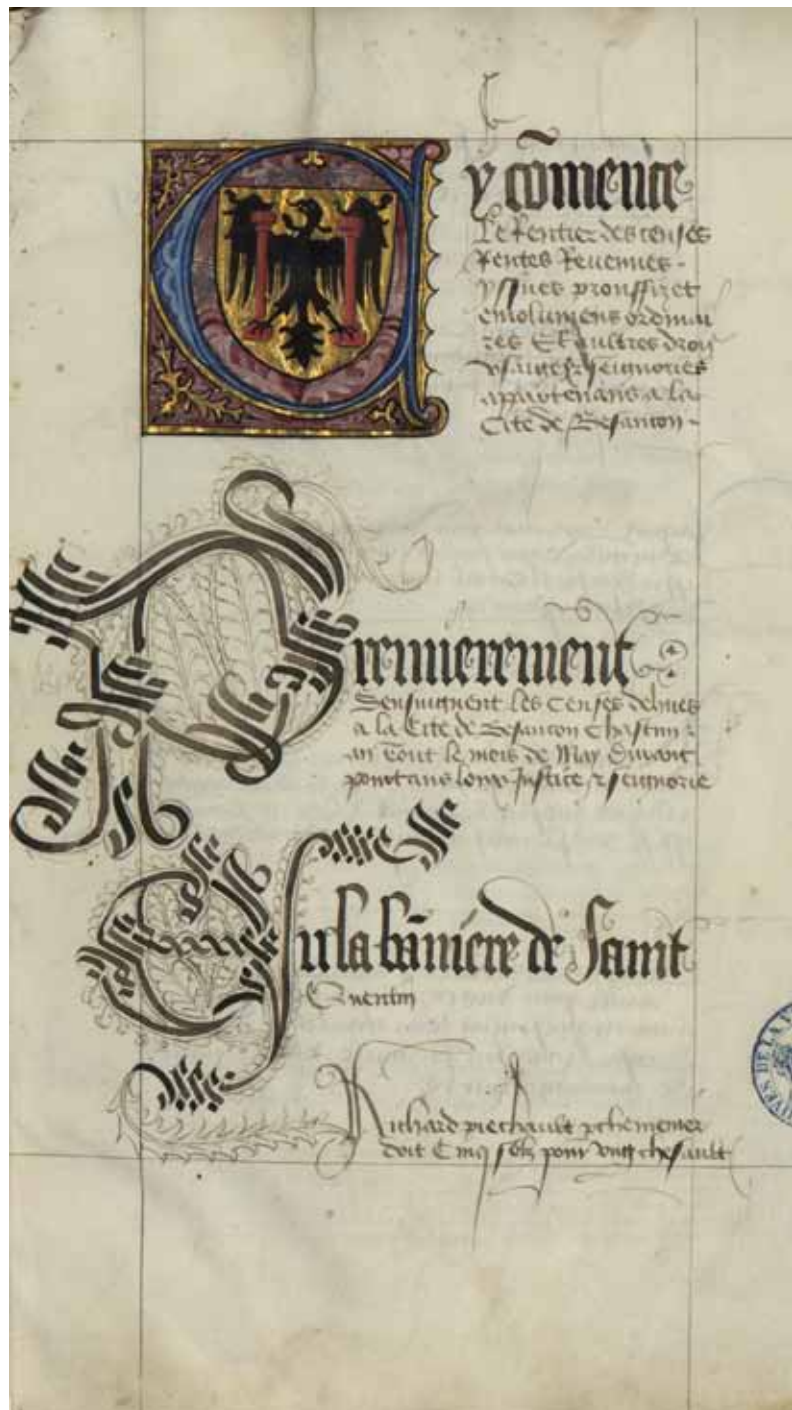 Cy cōmence
Le Rentier des censes
Rentes Revenues
yssues prouffiz et
emolumens ordinai
res Et aultres droiz
usaiges & seignories
appartenans a la
Cite de Besancon
Premierement
Sensuiguent les Censes dehues
a la Cite de Besancon Chascun
an tout le mois de May
pourtans lonx Justice & seignorie
En la bānniere de Saint
Quentin
Richard piechault pchementer
doit Cinq solz pour ung chesault
ARCHIVES DE LA